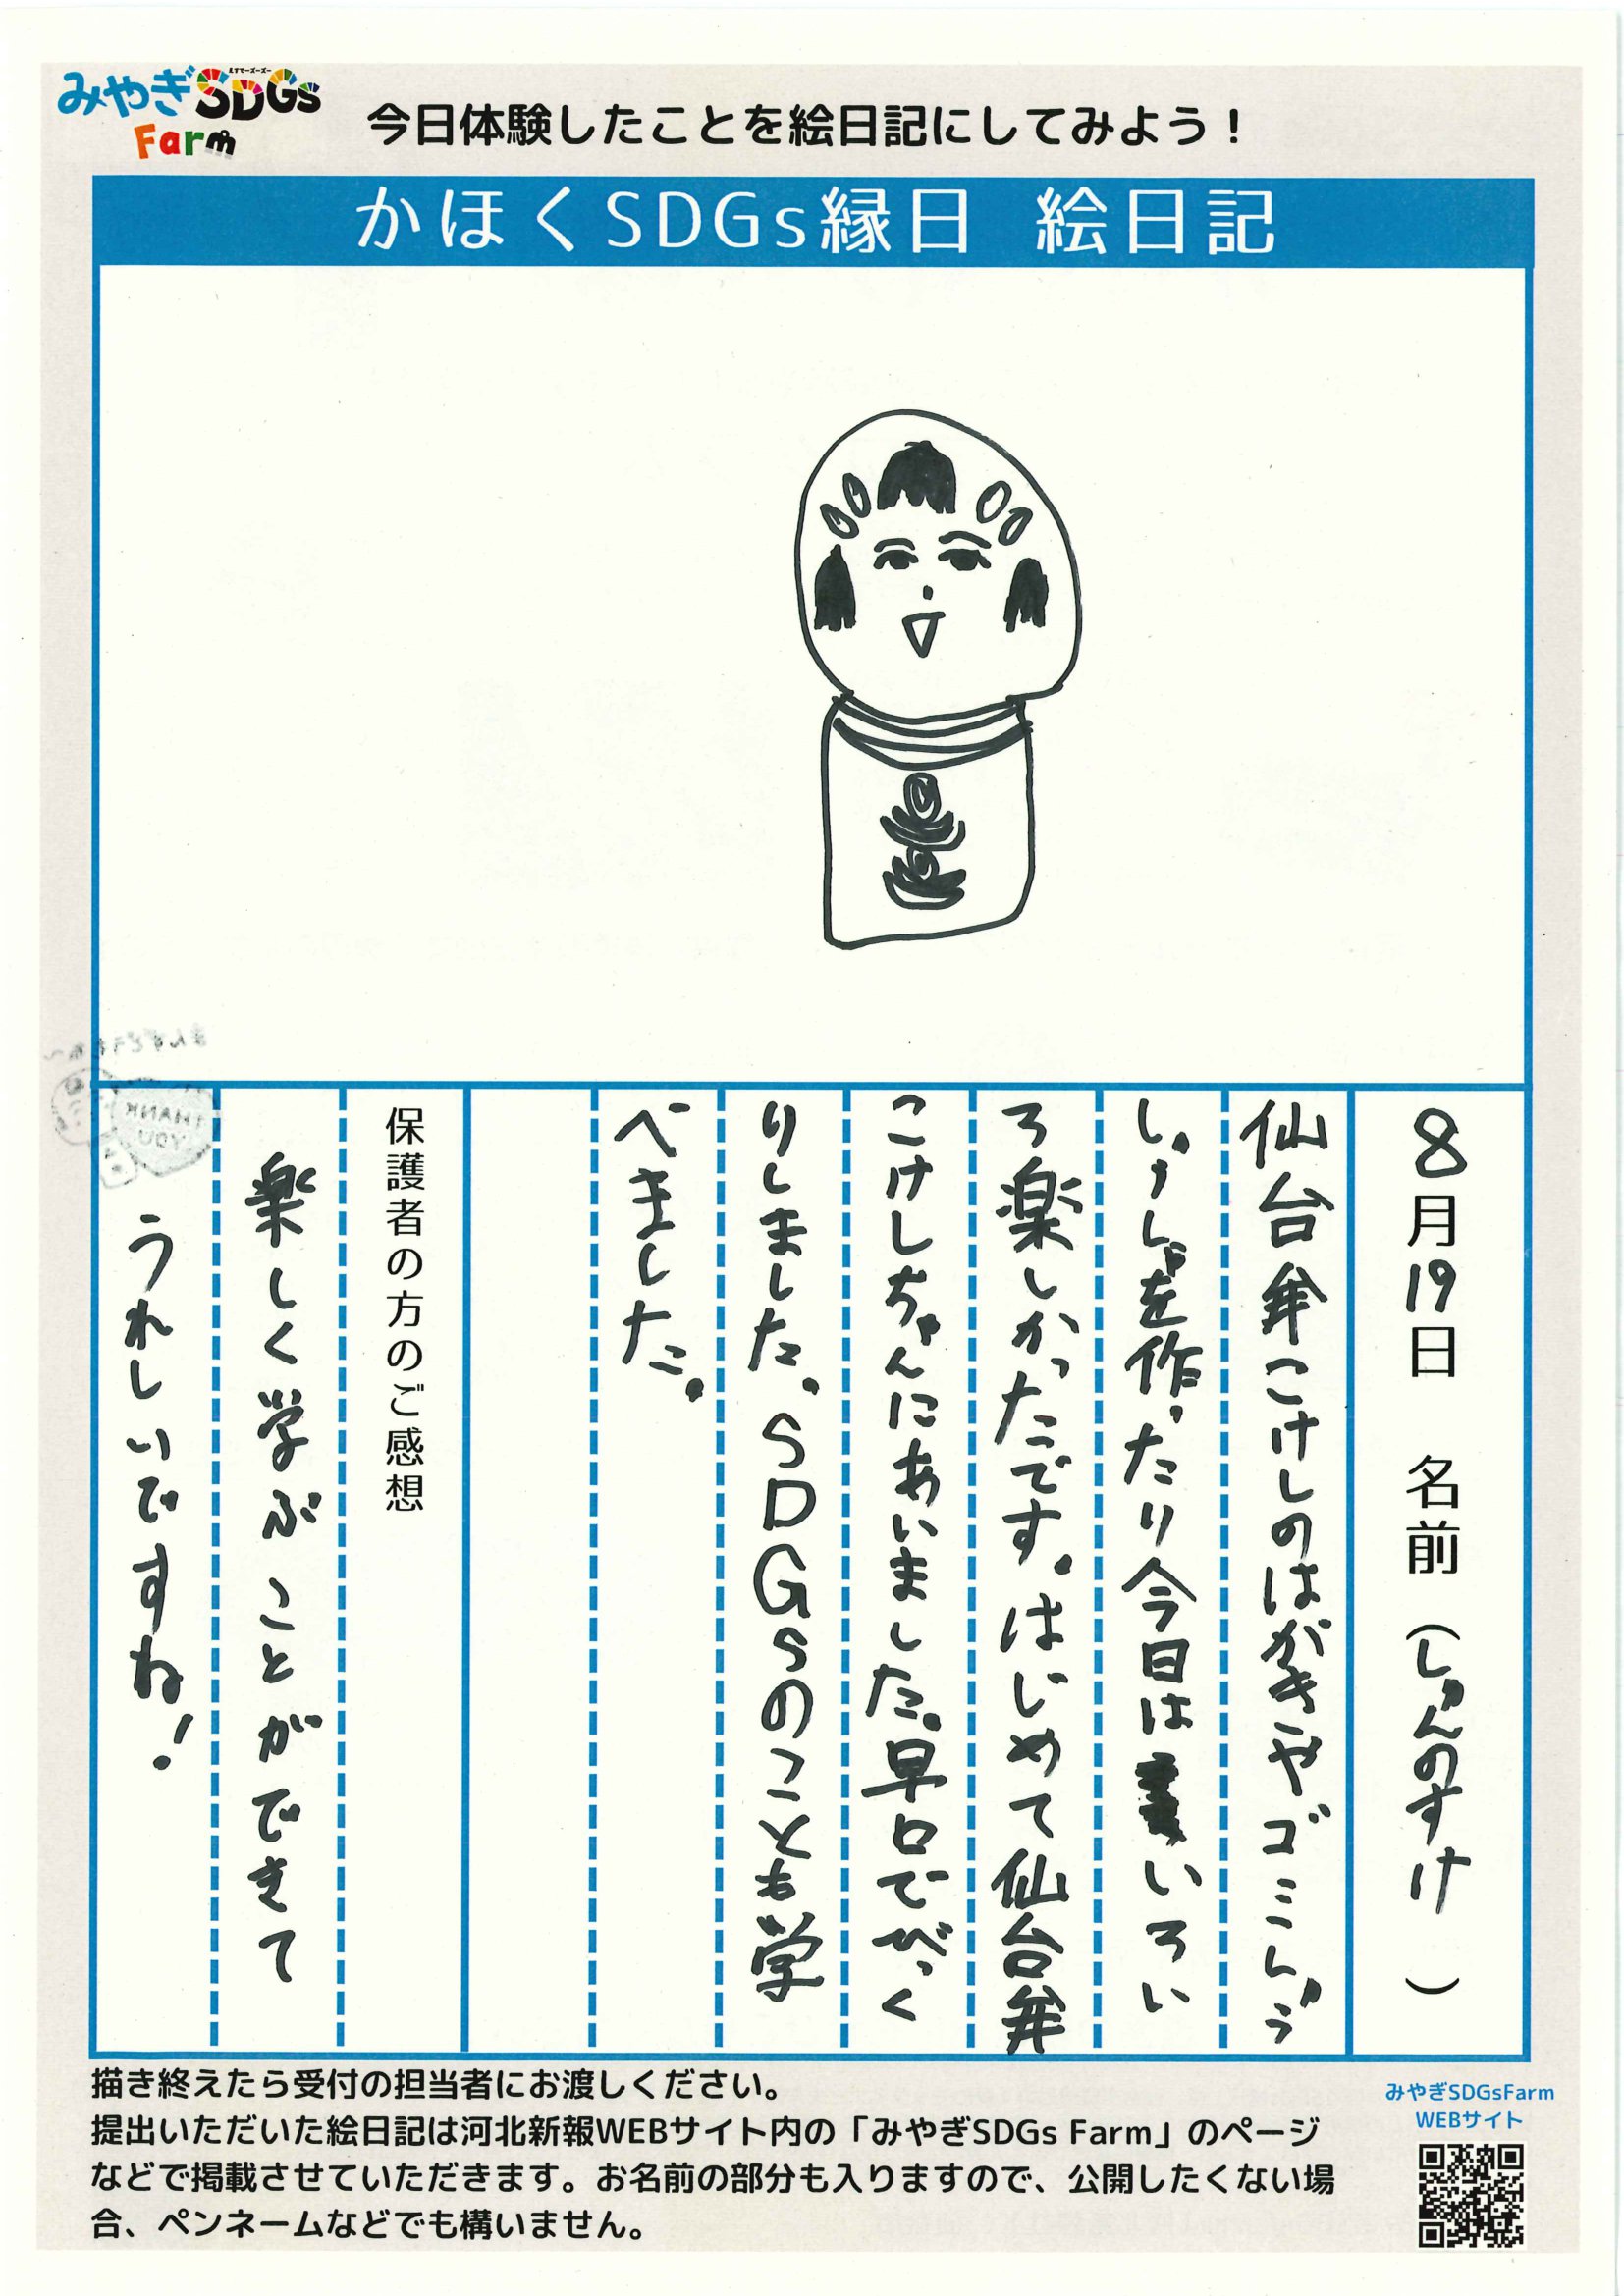 みやぎSDGs
えすでーずーずー
Farm
今日体験したことを絵日記にしてみよう！
かほくSDGs縁日 絵日記
8月19日 名前（しゅんのすけ）
仙台弁こけしのはがきやゴミしゅう
しゅうしゃを作ったり今日はいろい
ろ楽しかったです。はじめて仙台弁
こけしちゃんにあいました。早口でびっく
りしました。SDGsのことも学
べました。
保護者の方のご感想
楽しく学ぶことができて
うれしいですね！
THANK
YOU
描き終えたら受付の担当者にお渡しください。
提出いただいた絵日記は河北新報WEBサイト内の「みやぎSDGs Farm」のページ
などで掲載させていただきます。お名前の部分も入りますので、公開したくない場
合、ペンネームなどでも構いません。
みやぎSDGsFarm
WEBサイト